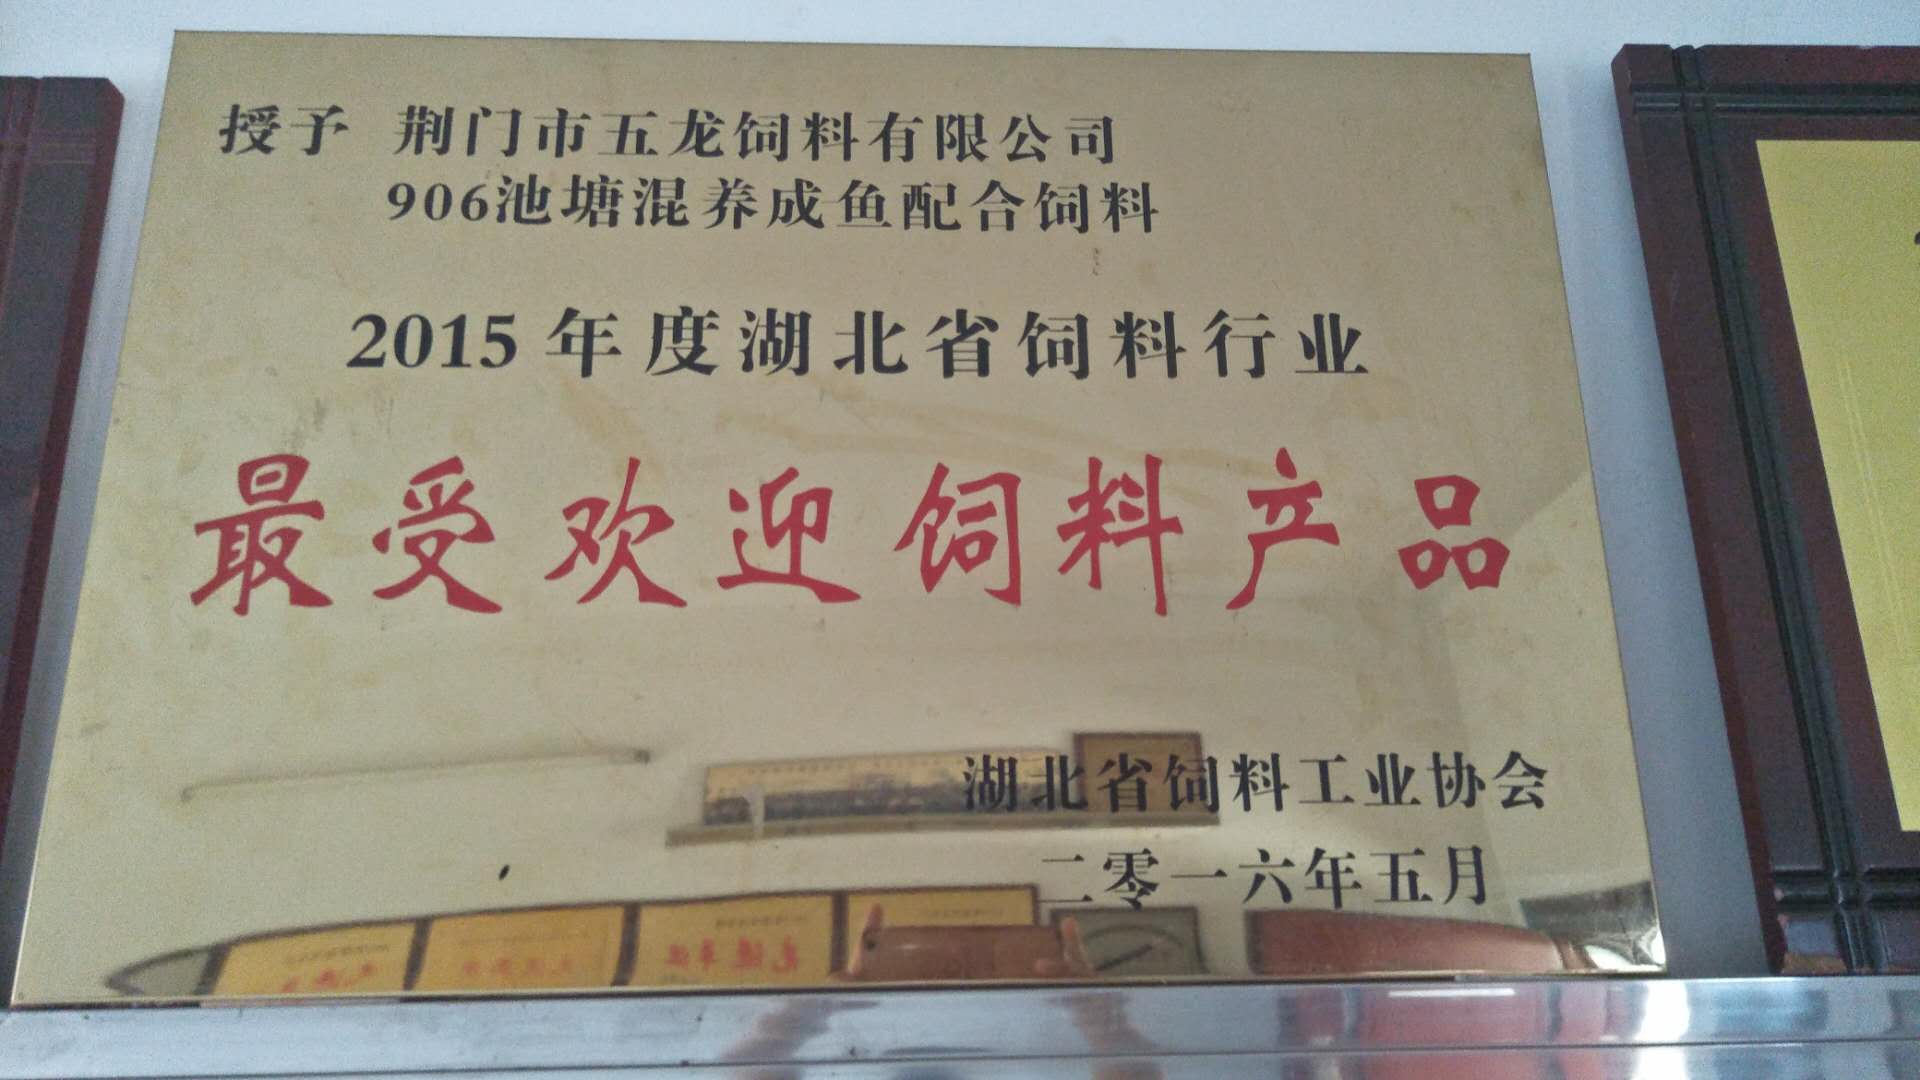 授予 荆门市五龙饲料有限公司
906池塘混养成鱼配合饲料
2015年度湖北省饲料行业
最受欢迎饲料产品
湖北省饲料工业协会
二零一六年五月